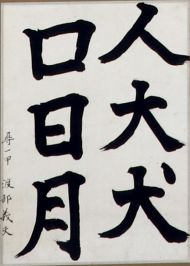 人大犬
口日月
尋一甲 渡部義文